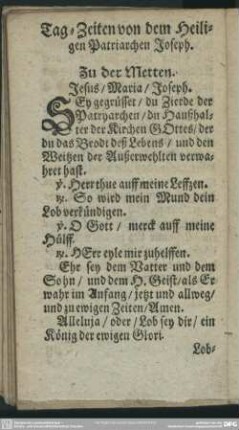 Tag-Zeiten von dem Heili-
gen Patriarchen Joseph.
Zu der Metten.
Jesus / Maria / Joseph.
SEy gegrüsset / du Zierde der
Patryarchen / du Haußhal-
ter der Kirchen GOttes / der
du das Brodt deß Lebens / und den
Weitzen der Außerwehlten verwa-
hret hast.
℣. Herr thue auff meine Leffzen.
℟. So wird mein Mund dein
Lob verkündigen.
℣. O Gott / merck auff meine
Hülff.
℟. HErr eyle mir zu helffen.
Ehr sey dem Vatter und dem
Sohn / und dem H. Geist / als Er
wahr im Anfang / jetzt und allweg /
und zu ewigen Zeiten / Amen.
Alleluja / oder / Lob sey dir / ein
König der ewigen Glori.
Lob-